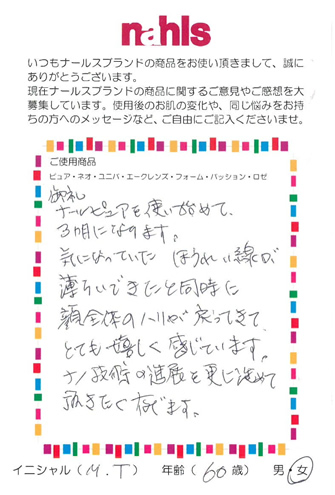 nahls
いつもナールスブランドの商品をお使い頂きまして、誠に
ありがとうございます。
現在ナールスブランドの商品に関するご意見やご感想を大
募集しています。使用後のお肌の変化や、同じ悩みをお持
ちの方へのメッセージなど、ご自由にご記入くださいませ。
ご使用商品
ピュア・ネオ・ユニバ・エークレンズ・フォーム・パッション・ロゼ
御礼
ナールピュアを使い始めて、
3ヵ月になります。
気になっていた ほうれい線が
薄らいできたと同時に
顔全体のハリが戻ってきて、
とても嬉しく感じています。
ナノ技術の進展を更に決めて
頂きたく存じます。
イニシャル(M.T) 年齢(60歳) 男・女